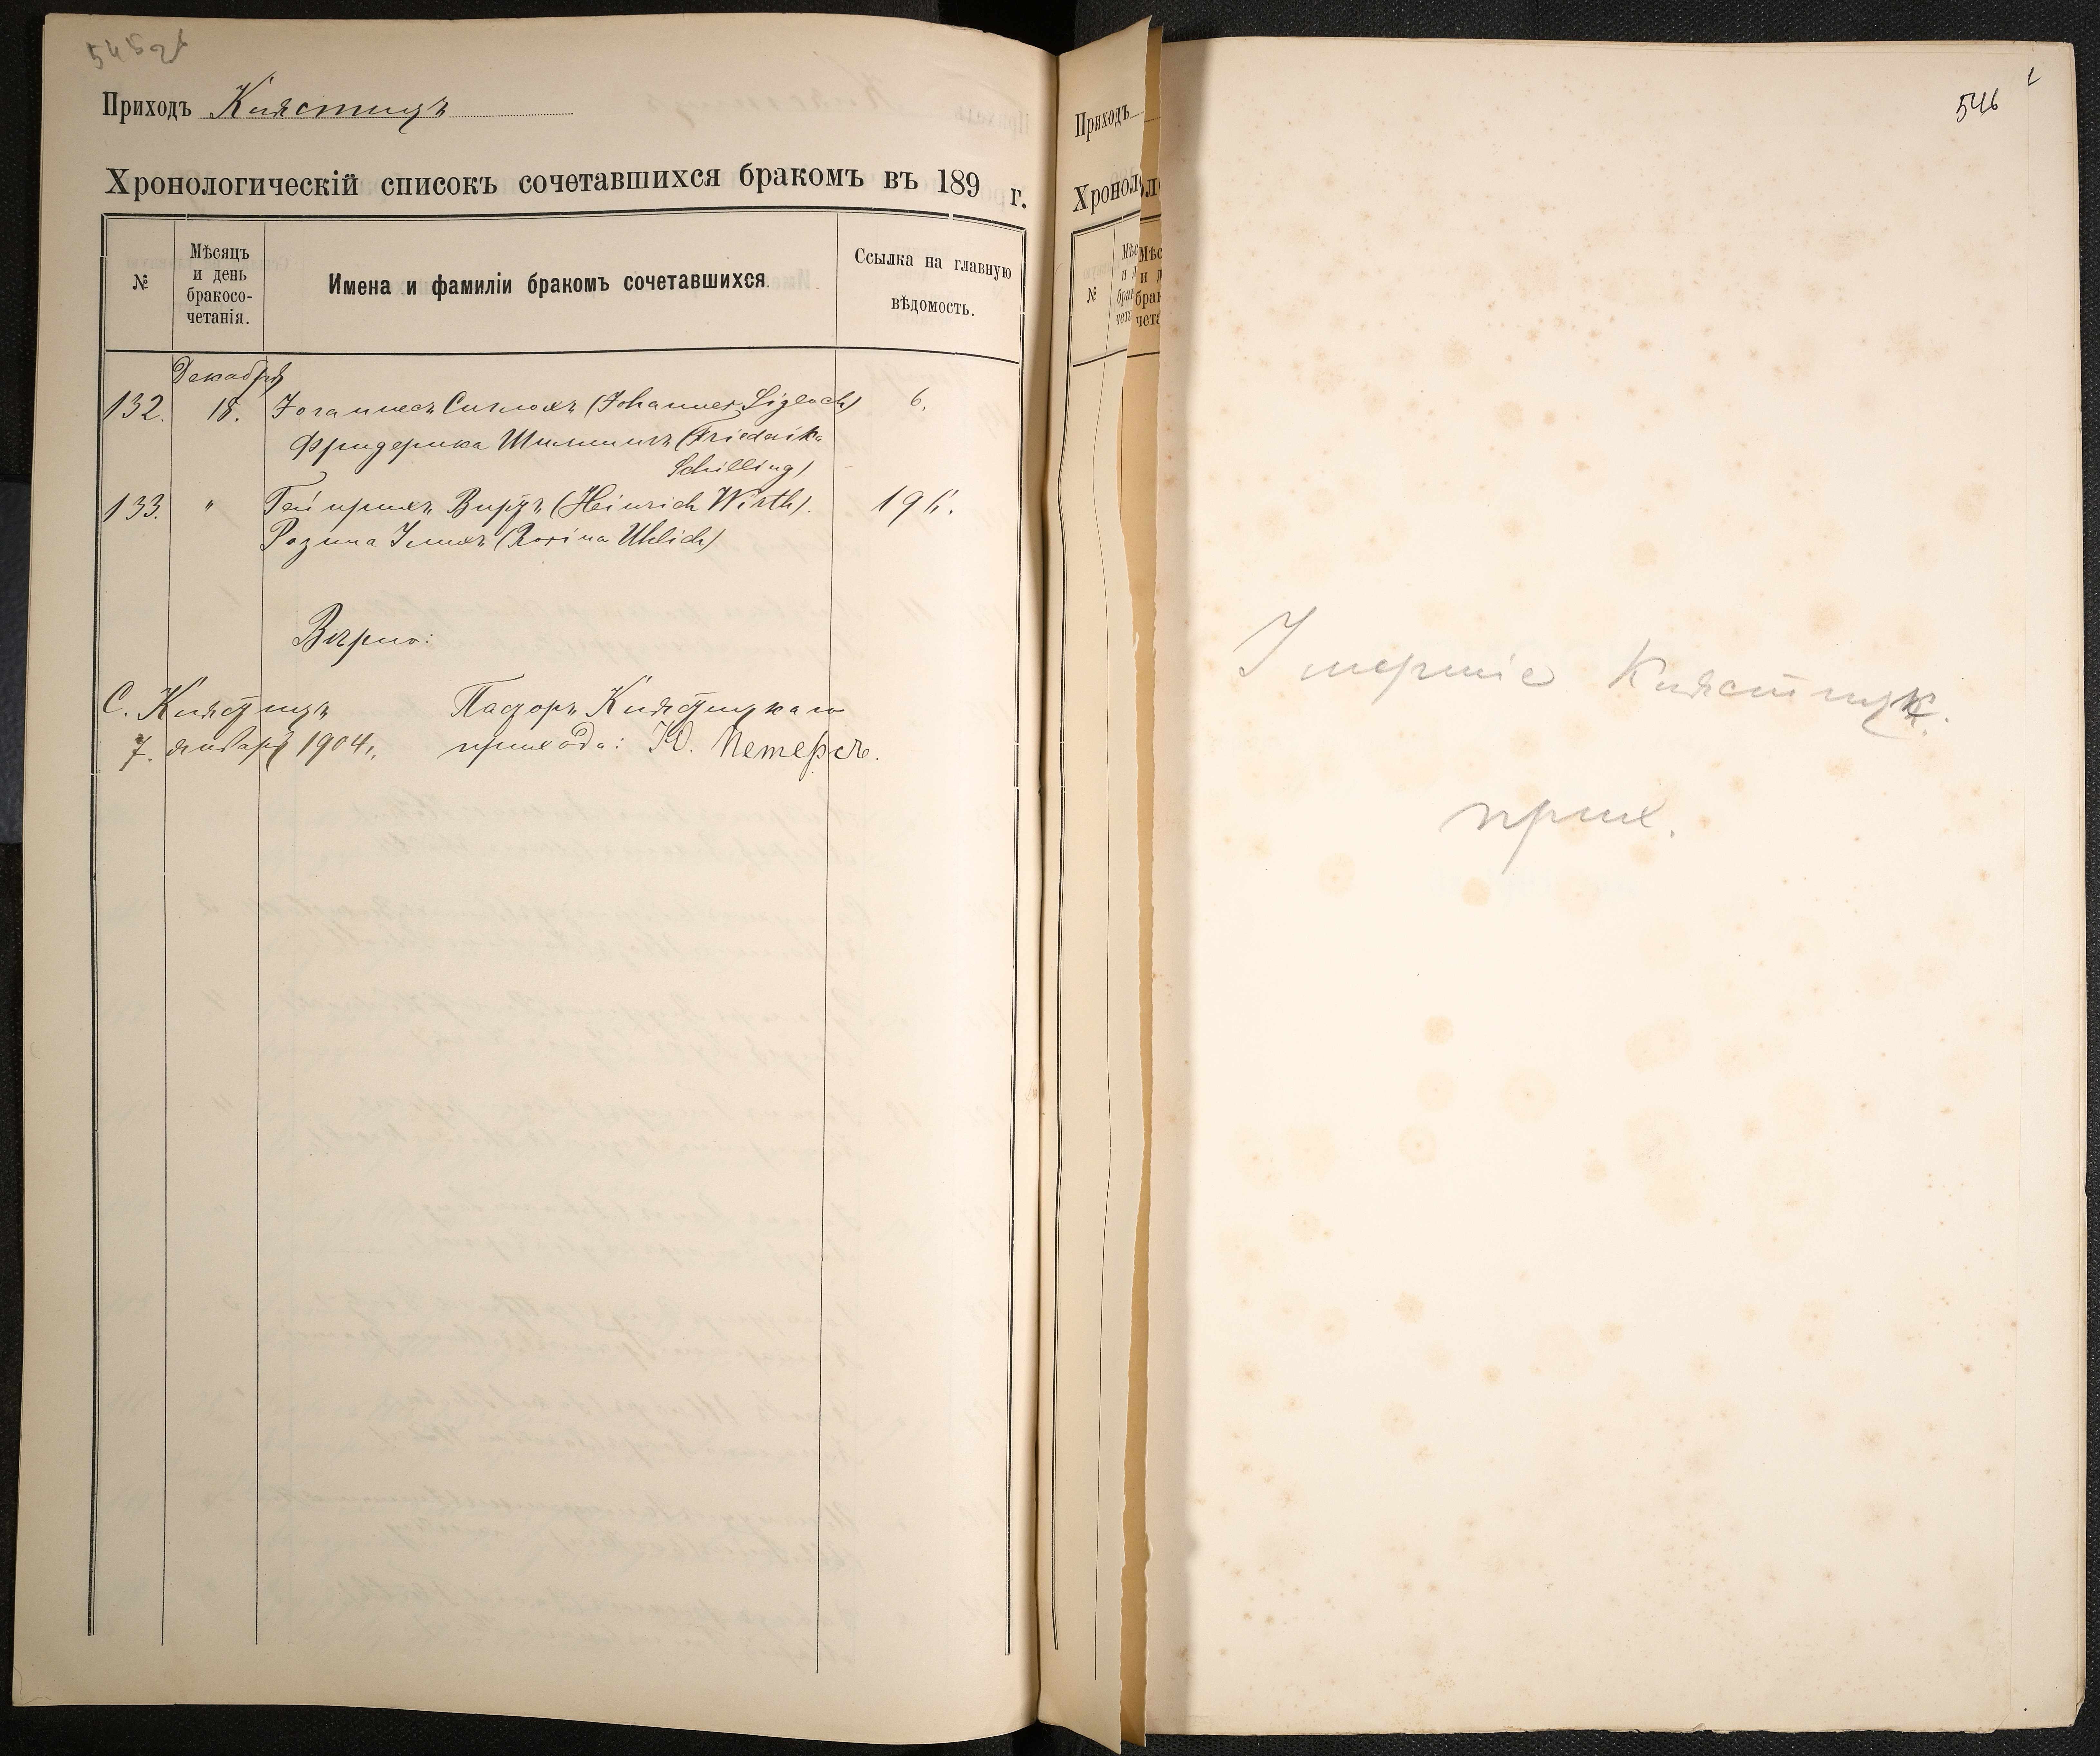 Приходъ Клястицъ
Хронологическій списокъ сочетавшихся бракомъ въ 189 г.
№
Мѣсяцъ
и день
бракосо-
четанія.
Имена и фамиліи бракомъ сочетавшихся.
Ссылка на главную
вѣдомость.
Декабря
132. 18. Іоганнесъ Сиглохъ (Johannes Sigloch) 6.
Фридерика Шиллингъ (Friederika
Schilling)
133. " Гейнрихъ Виртъ (Heinrich Wirth).
Розина Улихъ (Rosina Uhlich)
Вѣрно:
С. Клястицъ
7. января 1904 г.
Пасторъ Клястицкаго
прихода: Ю. Петерсъ.
Приходъ
Хроноло
№
546
Умершіе Клястицк.
прих.